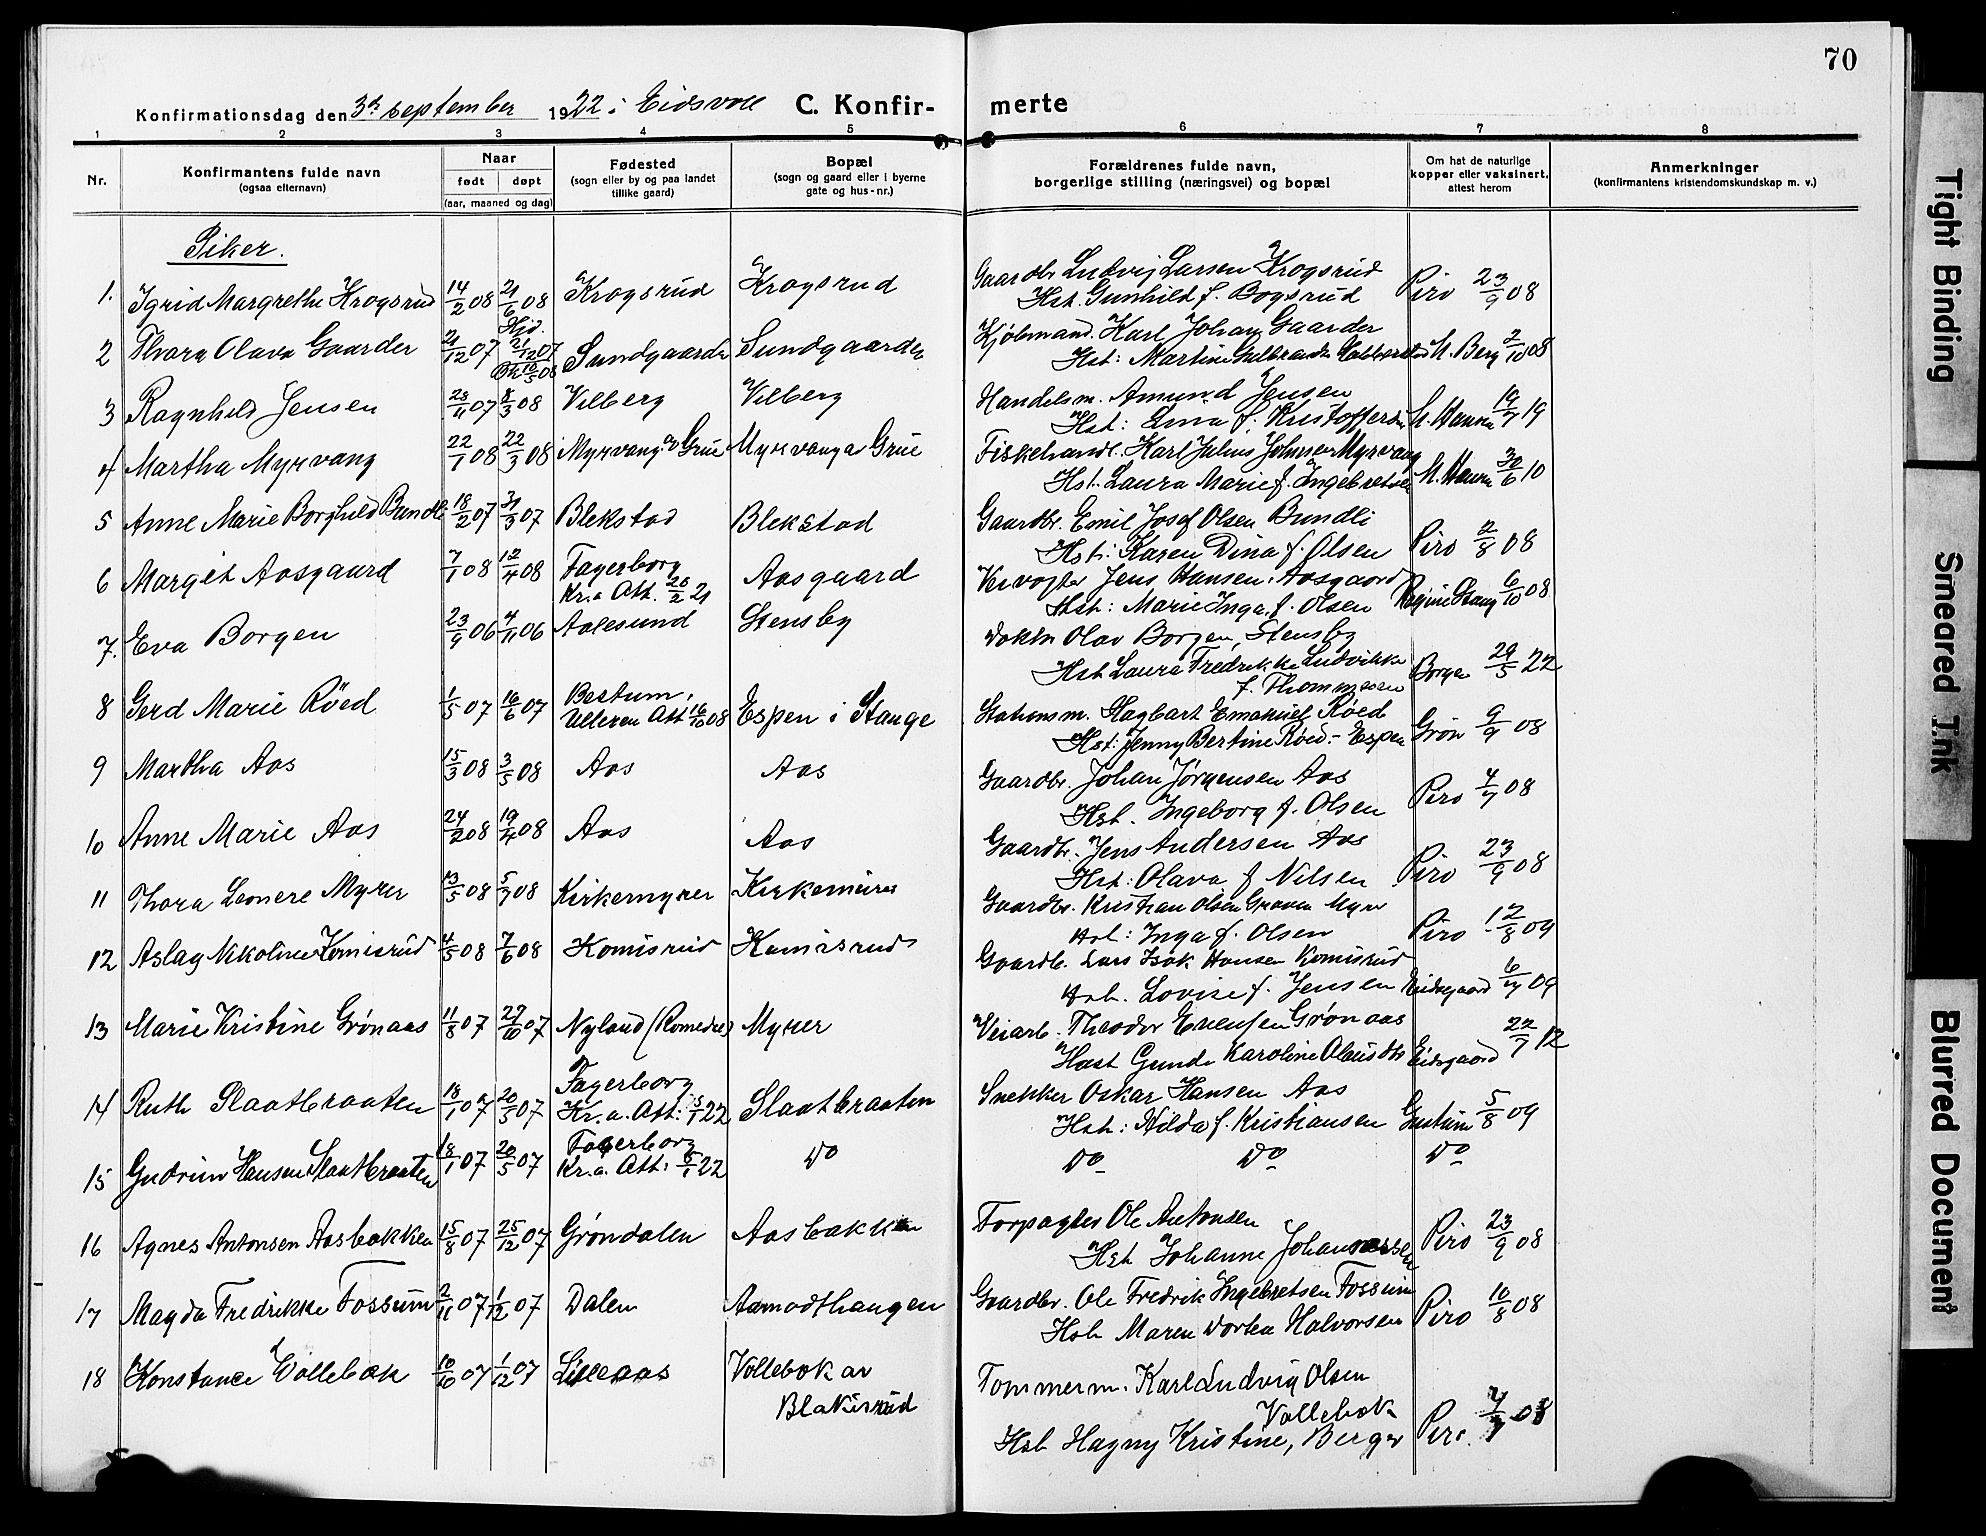 70
Konfirmationsdag den 3dr september 1922 i Eidsvoll C. Konfir- merte
1 2 3 4 5 6 7 8
Nr. Konfirmantens fulde navn (ogsaa efternavn) Naar født døpt (aar, maaned og dag) Fødested (sogn eller by og paa landet tillike gaard) Bopæl (sogn og gaard eller i byerne gate og hus-nr.) Forældrenes fulde navn, borgerlige stilling (næringsvei) og bopæl Om hat de naturlige kopper eller vaksinert, attest herom Anmerkninger (konfirmantens kristendomskundskap m. v.)
Piker.
1. Igrid Margrethe Krogsrud 14/2 08 21/6 08 Krogsrud Krogsrud Gaardbr Ludvig Larsen Krogsrud Piro 23/9 08
Hst. Gunhild f. Bogsrud
2 Thora Olava Gaarder 21/12 07 Hjd. 21/12 07 Sundgaarden Sundgaarden Kjøbmand. Karl Johan Gaarder M. Berg 2/10 08
Hst: Martine
3 Ragnhild Jensen 23/11 07 8/3 08 Vilberg Vilberg Handelsm. Amund Jensen
Hst: Lina f. Kristoffersen 19/7 19
4 Martha Myrvang 22/1 08 22/3 08 Myrvang av Grue Myrvang a Grue Fiskehandl. Karl Julius Johnsen Myrvang
Hst. Laura Marie f. Ingebretsen 30/6 10
5 Anne Marie Borghild Bundli 18/2 07 31/3 07 Blekstad Blekstad Gaardbr. Emil Josef Olsen Bundli
Hst: Karen Dina f. Olsen Piro 2/8 08
6 Margit Aasgaard 7/1 08 12/4 08 Fagerborg Aasgaard Veivogter Jens Hansen Aasgaard
Kr.a Att. 20/2 21 Hst: Marie Inga f. Olsen 6/10 08
7. Eva Borgen 23/9 06 4/11 06 Aalesund Stensby Doktor Olav Borgen, Stensby
Hst Laura Fredrikke Ludvikke Borgen 29/5 22
f. Thommesen
8 Gerd Marie Röed 1/5 07 16/6 07 Bestum, Espen i Stange Stationsm. Hagbart Emanuel Röed
Ulleren Att 16/6 08 Hst: Jenny Bertine Røed.- Espen Grön 9/9 08
9 Martha Aas 15/3 08 3/5 08 Aas Aas Gaardbr. Johan Jørgensen Aas
Hst. Ingeborg f. Olsen Piro 4/7 08
10 Anne Marie Aas 24/2 08 19/4 08 Aas Aas Gaardbr. Jens Andersen Aas
Hst: Olava f Nilsen Piro 23/9 08
11 Thora Leonere Myrer 13/5 08 5/7 08 Kirkemyrer Kirkemirer Gaardbr. Kristian Olsen Graven Myrer
Hst: Inga f. Olsen Piro 12/8 09
12 Aslag Nikoline Komisrud 4/5 08 7/6 08 Komisrud Komisrud Gaardb. Lars Isak Hansen Komisrud
Hst. Lovise f. Jensen Eidsgaard 6/7 09
13 Marie Kristine Grønaas 11/8 07 27/10 07 Nyland (Romedal) Myrer Veiarb. Theodor Evensen Grønaas
Hust Gunda Karoline Olausdtr Eidsgaard 22/7 12
14 Ruth Slaatbraaten 18/1 07 20/5 07 Fagerborg Slaatbraaten Snekker Oskar Hansen Aas
Kr.a. Att: 5/1 22 Hst: Hilda f. Kristiansen 5/8 09
15 Gudrun Hansen Slaatbraaten 18/1 07 20/5 07 Fagerborg Do Do Do Do
Kr.a. Att: 5/1 22
16 Agnes Antonsen Aasbakken 15/8 07 25/12 07 Grøndalen Aasbakken Forpagter Ole Antonsen
Hst Johanne Johannessen Piro 23/9 08
17 Magda Fredrikke Fossum 2/11 07 1/12 07 Dalen Aamodthaugen Gaardbr. Ole Fredrik Ingebretsen Fossum
Hst Maren Dortea Halvorsen Piro 10/8 08
18 Konstance Vollebæk 10/10 07 1/12 07 Lilleaas Vollebæk av Tommerm. Karl Ludvig Olsen
Blakisrud Vollebæk
Hst Hagny Kristine, Berger Piro. 4/7 08
Tight Binding
Smeared Ink
Blurred Document